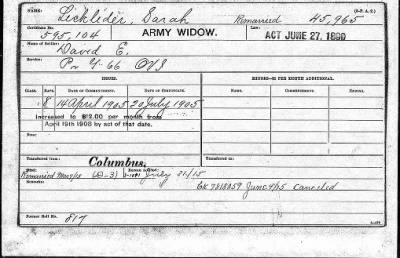 NAME: Licklider, Sarah Remarried 45,965 (3-P. A. 2.)
Certificate No. 595,104 ARMY WIDOW. Law: ACT JUNE 27, 1890
Name of Soldier: David E.
Service: Pvt G-66 OVI
ISSUES. RECORD—$2 PER MONTH ADDITIONAL.
CLASS. RATE. DATE OF COMMENCEMENT. DATE OF CERTIFICATE. COMMENCEMENT. ENDING.
8 14 April 1905 20 July 1905
Increased to $12.00 per month from
April 19th 1908 by act of that date.
Transferred from Columbus, Transferred to
Died: Remarried (D-3) 3-1081 July 21/15
Remarks: June 4/15 Canceled
Former Roll No. 817